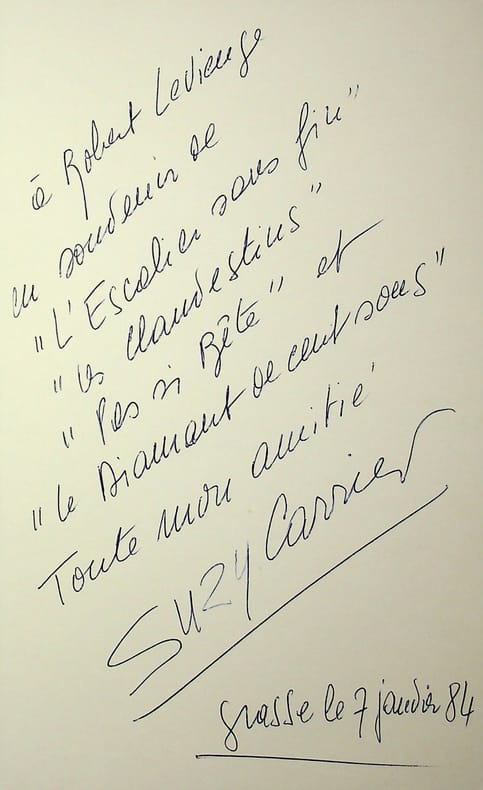 à Robert Levienge
en souvenir de
"L'Escalier sans fin"
"les clandestins"
"Pas si Bête" et
"le Diamant de cent sous"
Toute mon amitié
SUZY Carrier
Grasse le 7 janvier 84